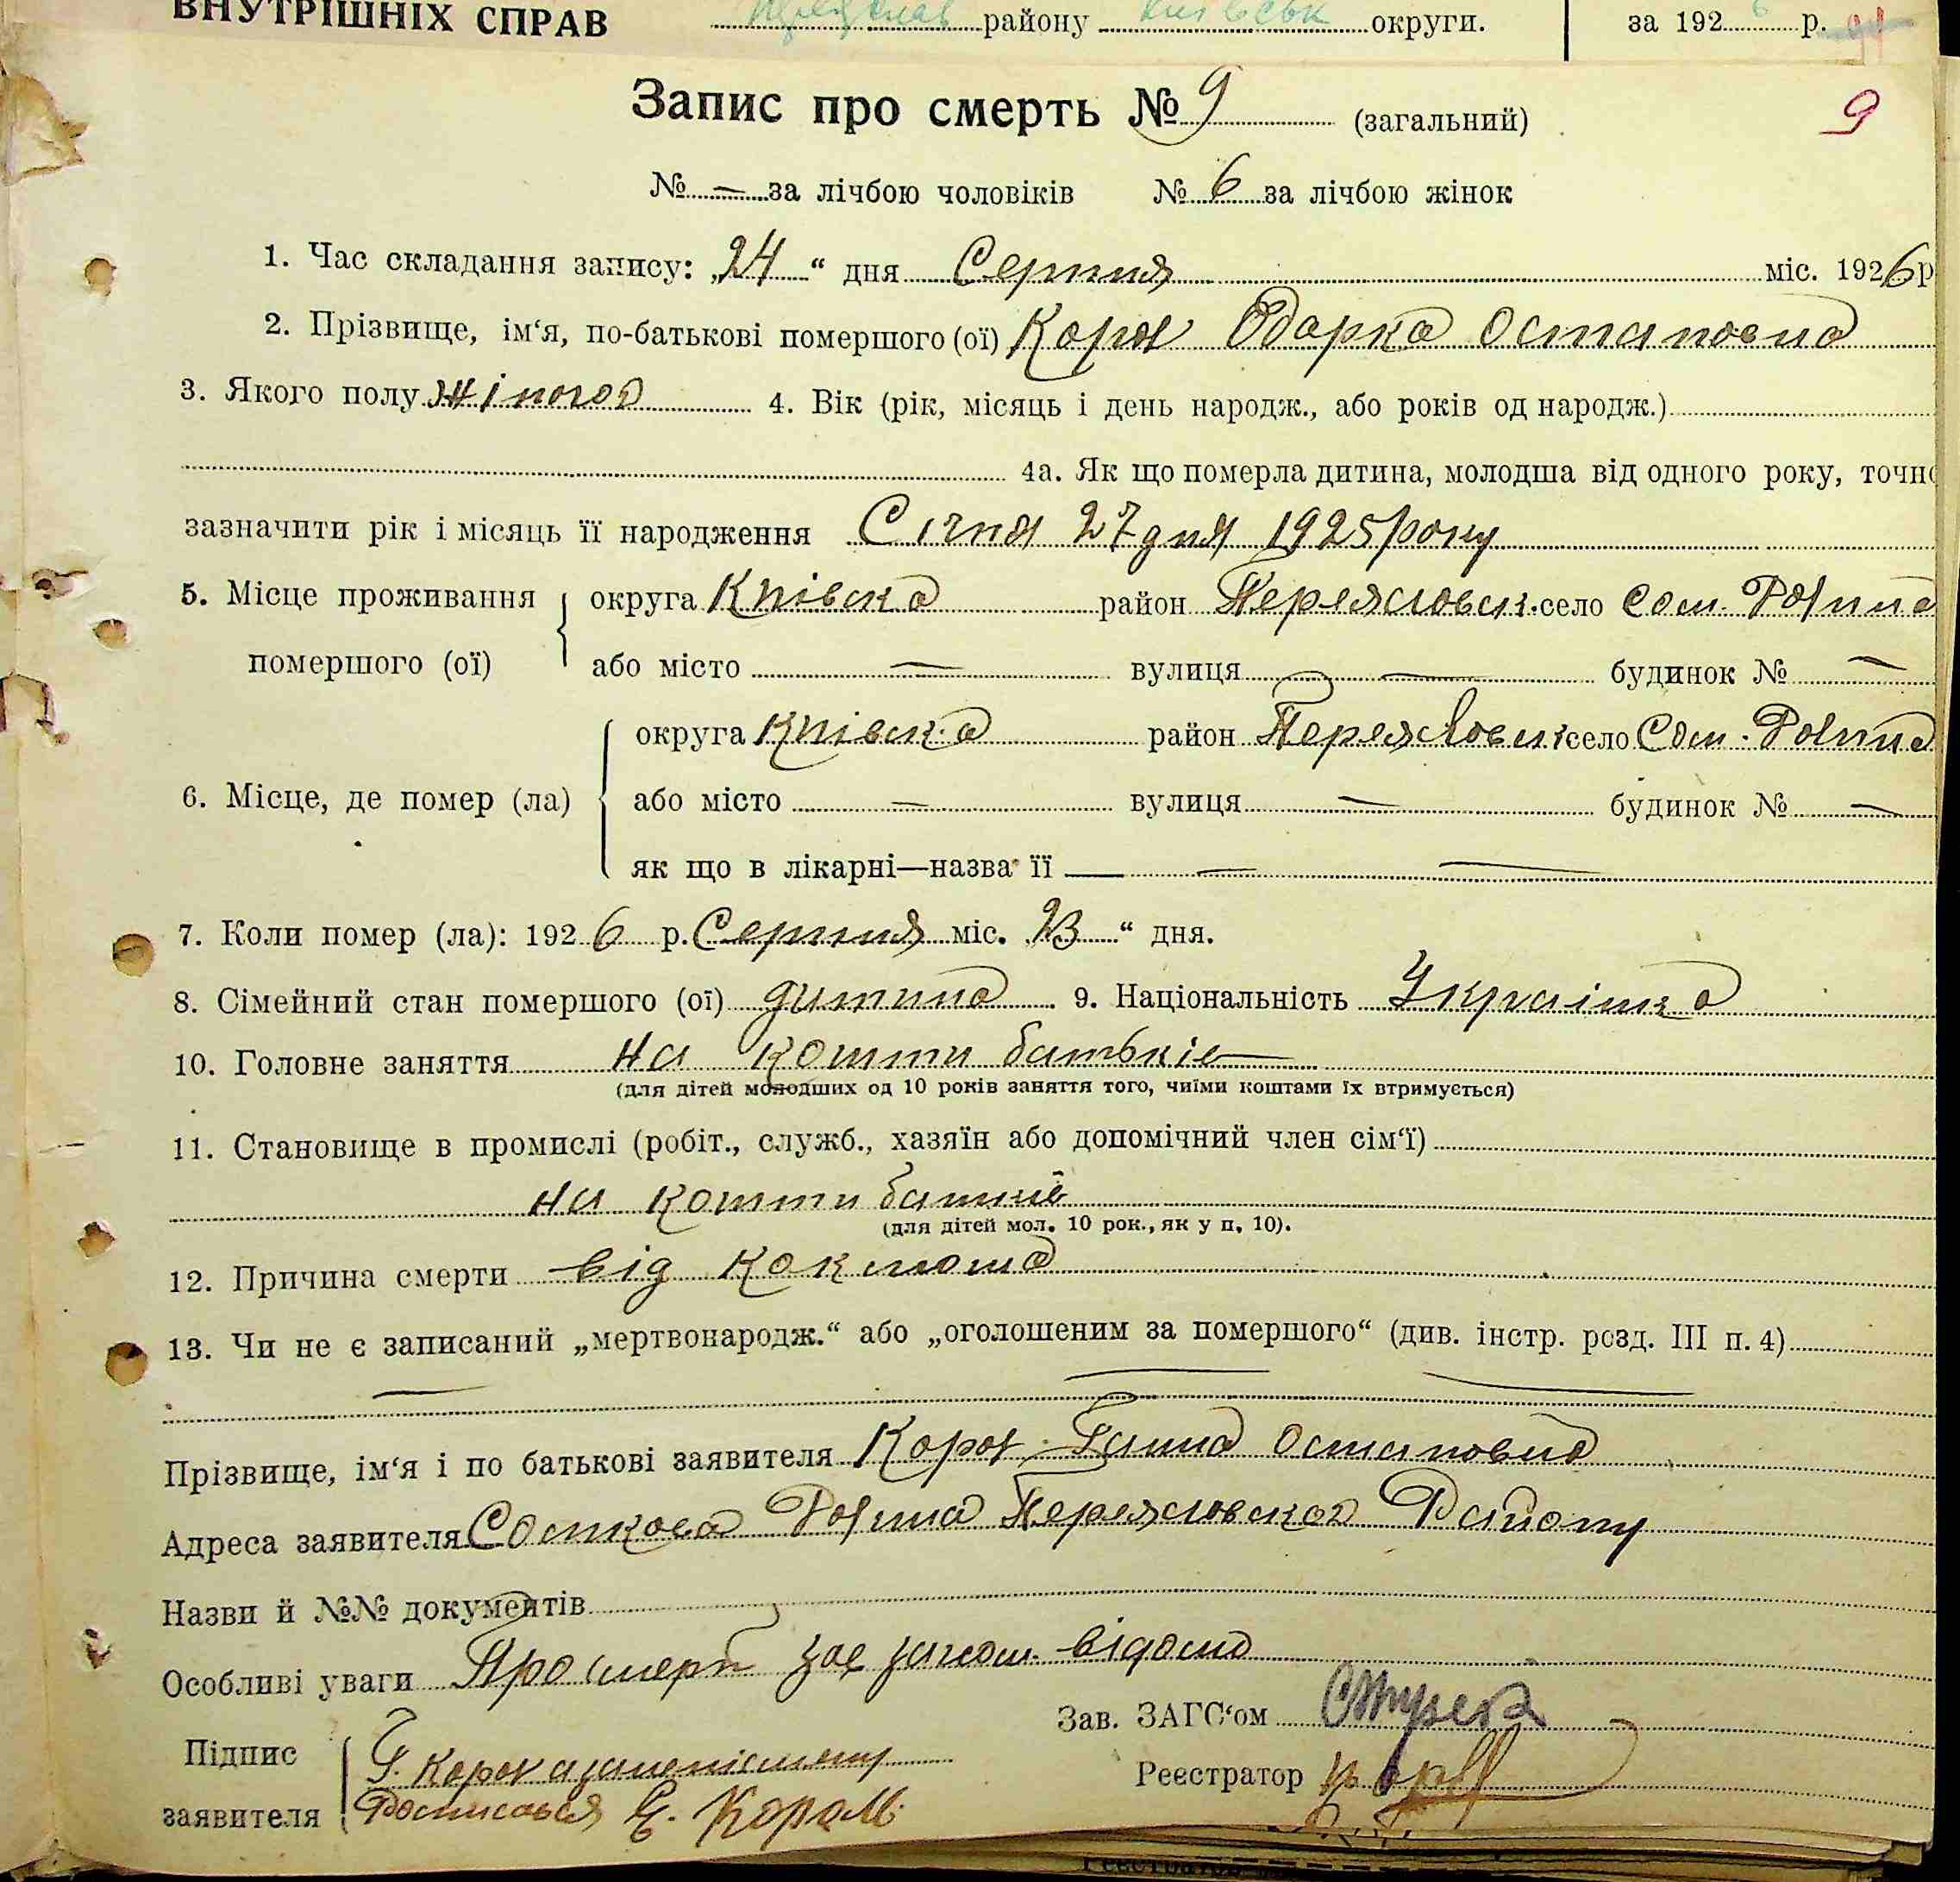 ВНУТРІШНІХ СПРАВ району округи. за 192 6 р.
Запис про смерть № 9 (загальний) 9
№ — за лічбою чоловіків № 6 за лічбою жінок
1. Час складання запису: „24“ дня Серпня міс. 1926 р
2. Прізвище, ім‘я, по-батькові помершого (ої) Одарка Остаповна
3. Якого полу Жіного 4. Вік (рік, місяць і день народж., або років од народж.)
4а. Як що померла дитина, молодша від одного року, точно
зазначити рік і місяць її народження Січня 27 дня 1925 року
5. Місце проживання округа Київска район Переясловск. село Сом. Долина
помершого (ої) або місто — вулиця — будинок № —
округа Київска район Переясловск село Сом. Долина
6. Місце, де помер (ла) або місто — вулиця — будинок № —
як що в лікарні—назва її — — —
7. Коли помер (ла): 1926 р. Серпня міс. „23“ дня.
8. Сімейний стан помершого (ої) дитина 9. Національність Украінка
10. Головне заняття на кошти батьків
(для дітей молодших од 10 років заняття того, чиїми коштами їх втримується)
11. Становище в промислі (робіт., служб., хазяїн або допомічний член сім‘ї)
на кошти батків
(для дітей мол. 10 рок., як у п. 10).
12. Причина смерти від Коклюша
13. Чи не є записаний „мертвонародж.“ або „оголошеним за помершого“ (див. інстр. розд. III п. 4)
— — —
Прізвище, ім‘я і по батькові заявителя Ганна Остаповна
Адреса заявителя Сомкова Долина Переясловского Району
Назви й №№ документів
Особливі уваги Про смерть відомо
Зав. ЗАГС‘ом
Підпис Г.
Реєстратор
заявителя Росписався Король